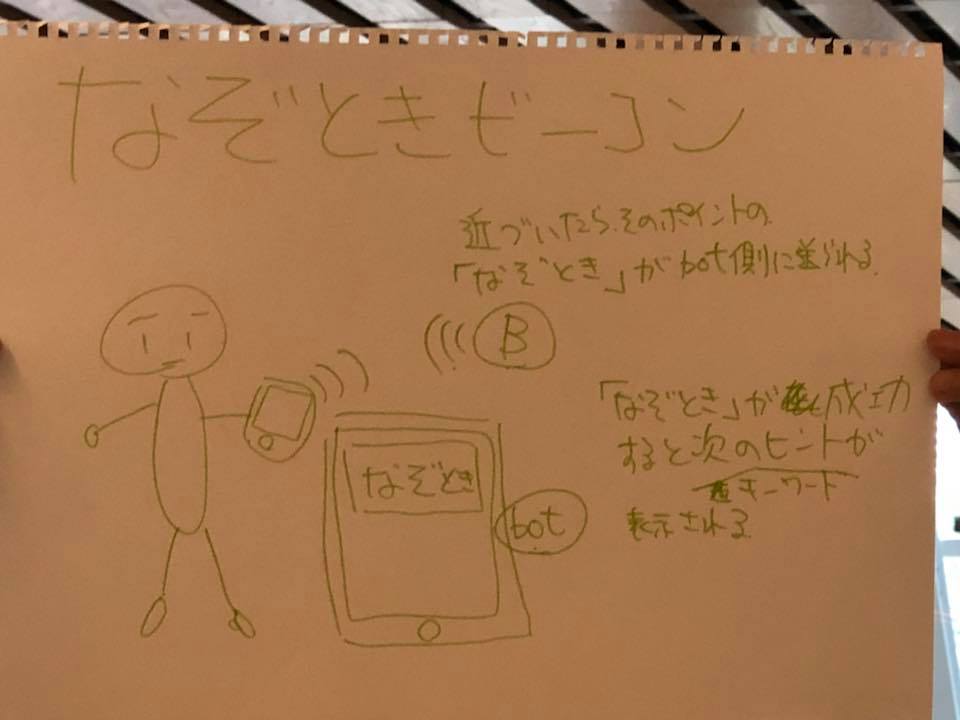 なぞときビーコン
近づいたら、そのポイントの
「なぞとき」がbot側に送られる。
B
「なぞとき」が成功
すると次のヒントが
キーワード
表示される
なぞとき
bot